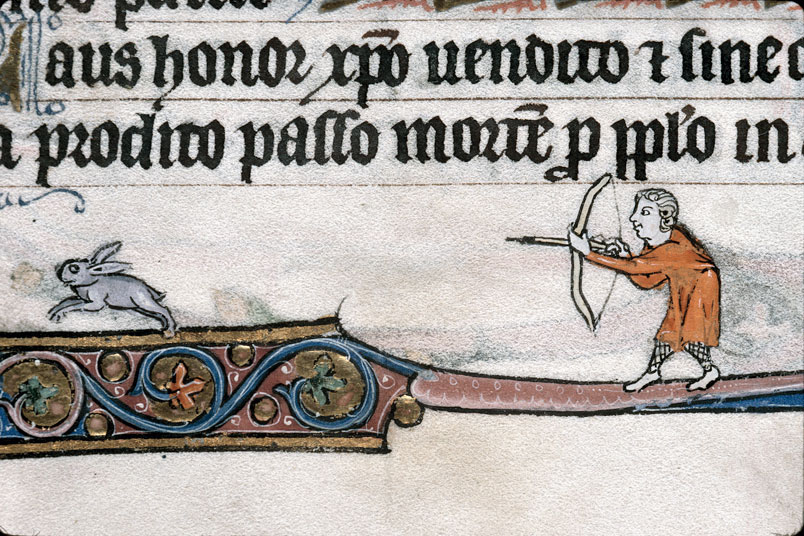 aus honor xp̄o uendito ⁊ sine
a prodito passo morte̅ p̱ ppl'o in